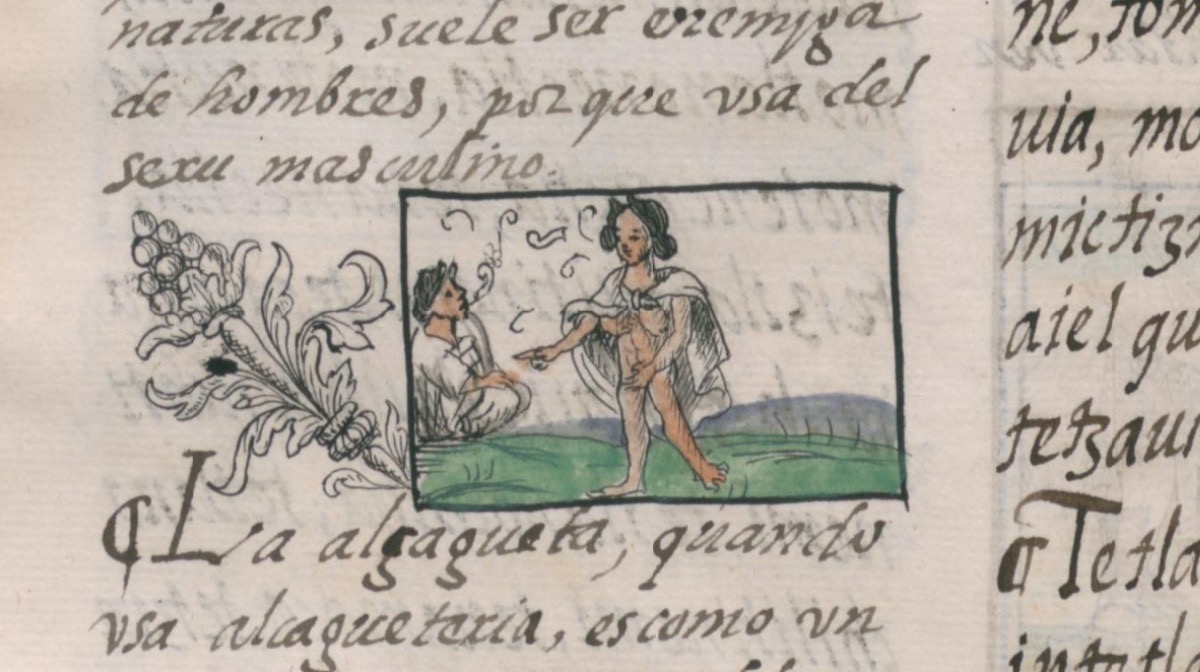 naturas, suele ser enemiga
de hombres, porque vsa del
sexu masculino.
¶ La alcagueta, quando
vsa alcagueteria, es como vn
ne, tom
uia, mo
mictiz
aiel qu
tetzau
¶ Tetla